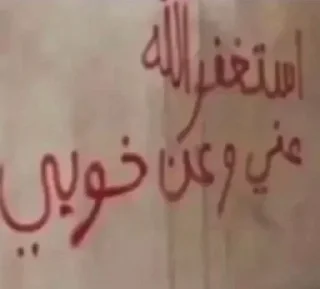 استغفر الله
عني وعن خويي